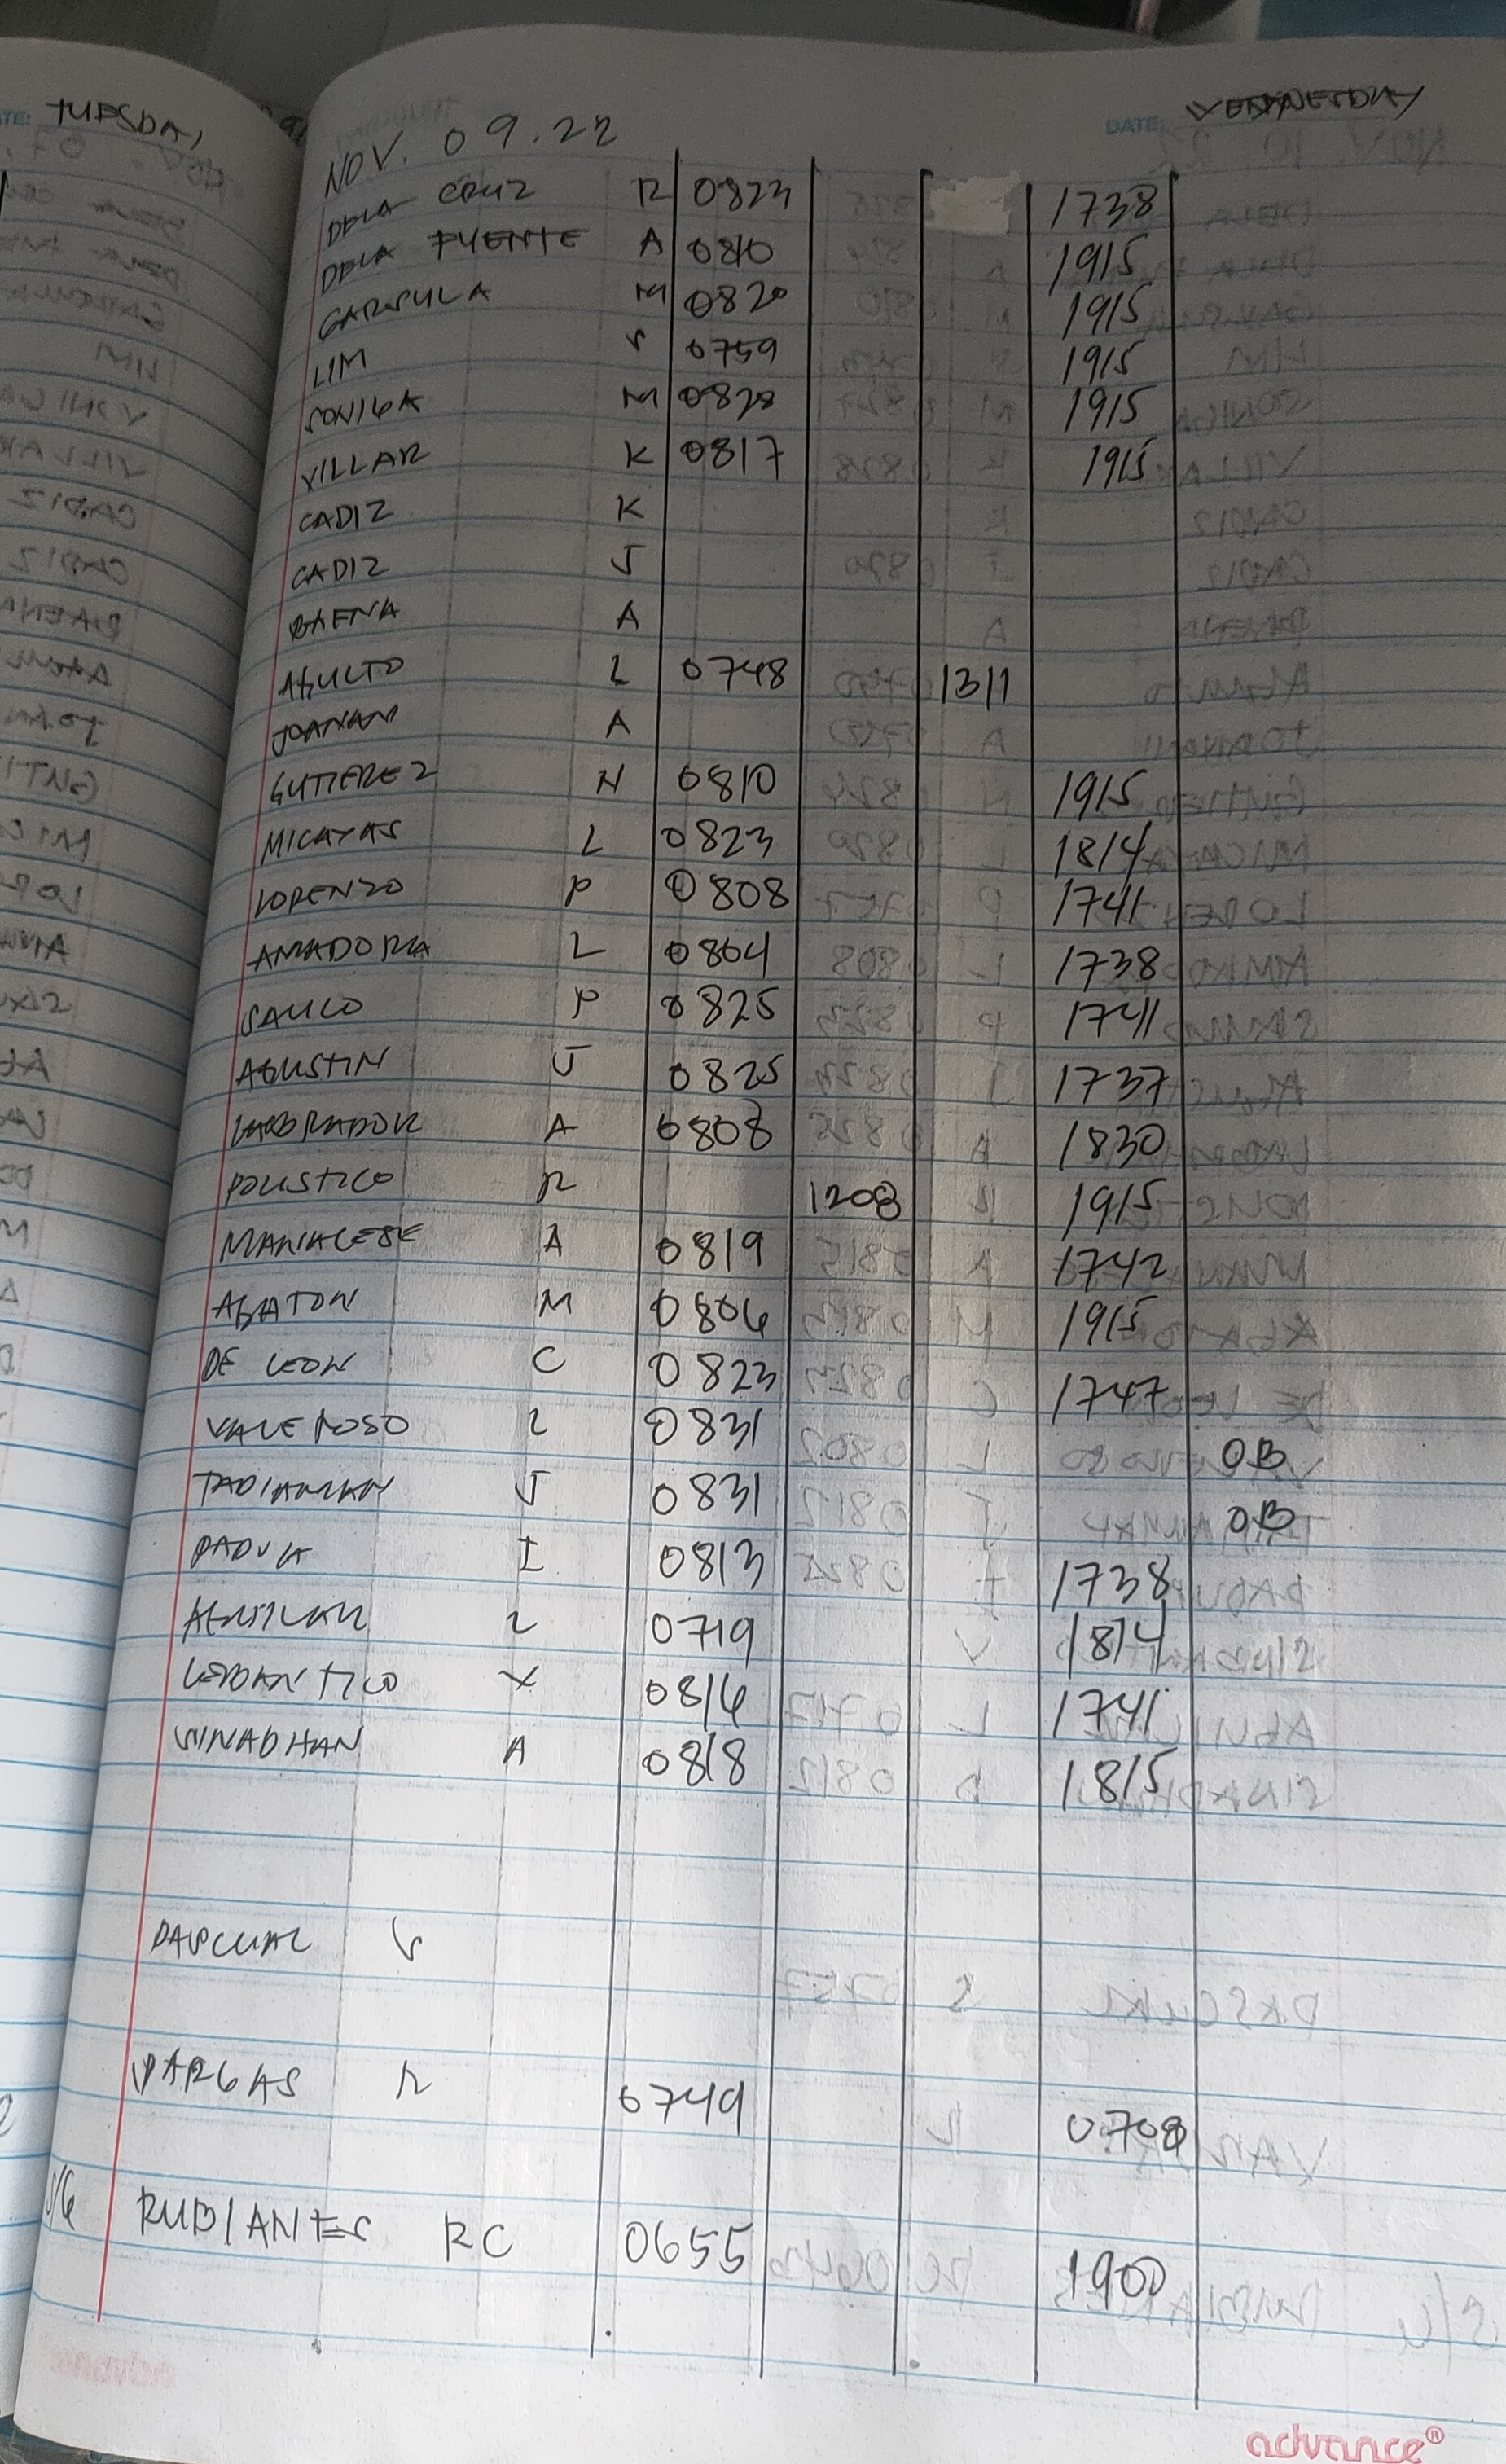 TUESDAY
DATE: WEDNESDAY
NOV. 09.22
DELA CRUZ R 0823 1738
DELA FUENTE A 0810 1915
GARSULA M 0820 1915
LIM S 0759 1915
SONIGA M 0828 1915
VILLAR K 0817 1915
CADIZ K
CADIZ J
BAENA A
AGULTO L 0748 1311
JOANAN A
GUTIEREZ N 0810 1915
MICAYAS L 0823 1814
LORENZO P 0808 1741
AMADORA L 0804 1738
SAULO P 0825 1741
AGUSTIN J 0825 1737
LABRADOR A 0808 1830
POLISTICO R 1208 1915
MANALESE A 0819 1742
ABATON M 0806 1915
DE LEON C 0823 1747
VALEROSO L 0831 OB
TADIAMAN J 0831 OB
PADUA I 0813 1738
AGUILAR L 0719 1814
X 0816 1741
SINADHAN A 0818 1815
PASCUAL S
VARGAS R 0749 0708
S/G RUBIANES RC 0655 1900
advance®